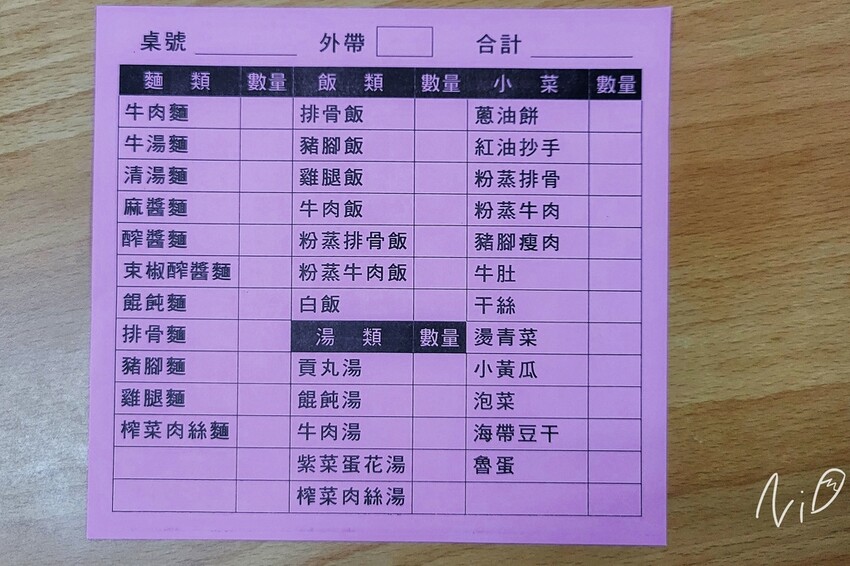 桌號 外帶 合計
麵類 數量 飯類 數量 小菜 數量
牛肉麵 排骨飯 蔥油餅
牛湯麵 豬腳飯 紅油抄手
清湯麵 雞腿飯 粉蒸排骨
麻醬麵 牛肉飯 粉蒸牛肉
醡醬麵 粉蒸排骨飯 豬腳瘦肉
束椒醡醬麵 粉蒸牛肉飯 牛肚
餛飩麵 白飯 干絲
排骨麵 湯類 數量 燙青菜
豬腳麵 貢丸湯 小黃瓜
雞腿麵 餛飩湯 泡菜
榨菜肉絲麵 牛肉湯 海帶豆干
紫菜蛋花湯 魯蛋
榨菜肉絲湯